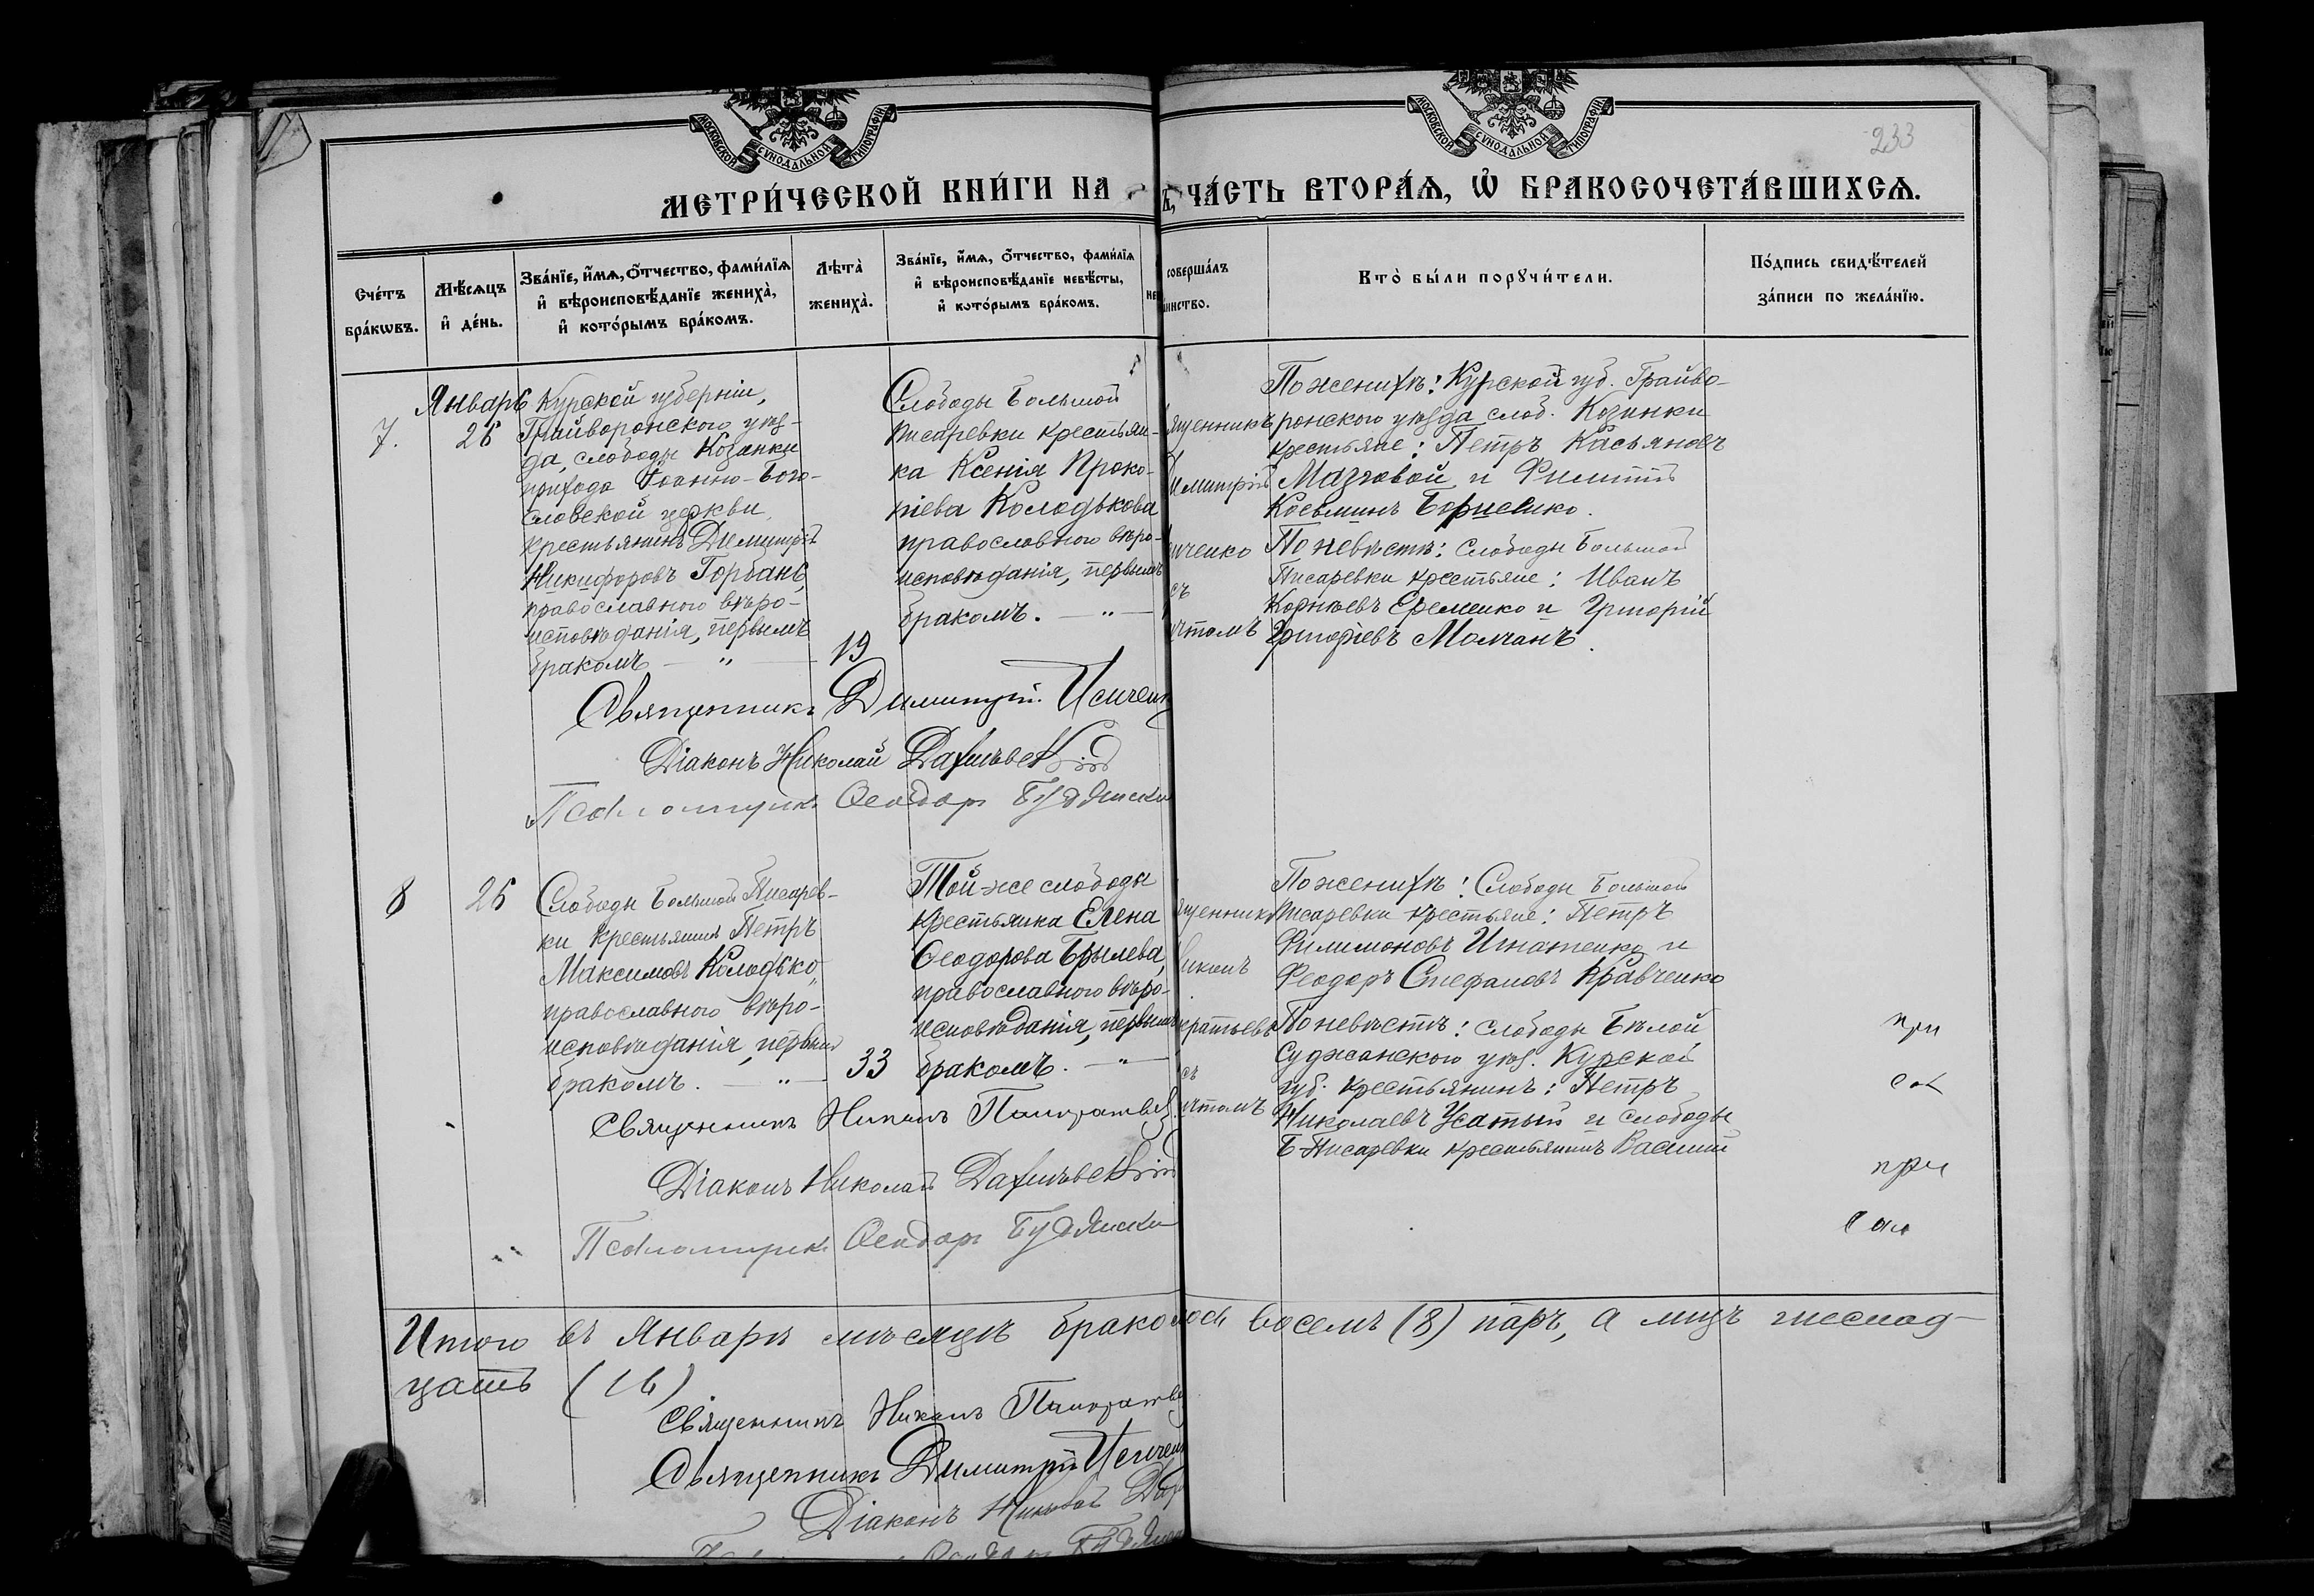 МОСКОВСКОЙ СУНОДАЛЬНОЙ ТИПОГРАФІИ
МОСКОВСКОЙ СУНОДАЛЬНОЙ ТИПОГРАФІИ
233
МЕТРИ́ЧЕСКОЙ КНИ́ГИ НА
ЧА́СТЬ ВТОРА́Ѧ, Ѽ БРАКОСОЧЕТА́ВШИХСѦ.
Сче́тъ
бра́кѡвъ.
Мѣ́сѧцъ
и҆ де́нь.
Зва́нїе, и҆́мѧ, ѻ҆́тчество, фами́лїѧ
и҆ вѣроисповѣ́данїе жениха̀,
и҆ кото́рымъ бра́комъ.
Лѣта̀
жениха̀.
Зва́нїе, и҆́мѧ, ѻ҆́тчество, фами́лїѧ
и҆ вѣроисповѣ́данїе невѣ́сты,
и҆ кото́рымъ бра́комъ.
соверша́лъ
Кто̀ бы́ли порꙋчи́тели.
По́дпись свидѣ́телей
за́писи по жела́нїю.
7.
Январь
26
Курской губерніи,
Грайворонскаго уѣз-
да, слободы Козинки
прихода Іоанно-Бого-
словской церкви,
крестьянинъ Димитрій
Никифоровъ Горбань,
православнаго вѣро-
исповѣданія, первымъ
бракомъ — „ —
19
Слободы Большой
Писаревки крестьян-
ка Ксенія Проко-
піева Колодькова
православнаго вѣро-
исповѣданія, первымъ
бракомъ. — „ —
ященникъ
Димитрій
иченко
съ
чтомъ
По женихѣ: Курской губ. Грайво-
ронскаго уѣзда слоб. Козинки
крестьяне: Петръ Касьяновъ
Мазговой и Филиппъ
Косьминъ Борисенко.
По невѣстѣ: слободы Большой
Писаревки крестьяне: Иванъ
Корнѣевъ Еременко и Григорій
Григоріевъ Молчанъ.
Священникъ Димитрій Исичен
Діаконъ Николай
Псаломщикъ Ѳеодоръ
8
26
Слободы Большой Писарев-
ки крестьянинъ Петръ
Максимовъ Колодько,
православнаго вѣро-
исповѣданія, первымъ
бракомъ. — „ —
33
Той-же слободы
крестьянка Елена
Ѳеодорова Брылева,
православнаго вѣро-
исповѣданія, первымъ
бракомъ. — „ —
ященникъ
иконъ
кратьевъ
съ
чтомъ
По женихѣ: Слободы Большой
Писаревки крестьяне: Петръ
Филимоновъ Игнатенко и
Феодоръ Стефановъ Кравченко
По невѣстѣ: слободы Бѣлой
Суджанскаго уѣз. Курской
губ. крестьянинъ: Петръ
Николаевъ Усатый и слободы
Б-Писаревки крестьянинъ Василій
при
при
Священникъ Никонъ Панкратьев
Діаконъ Николай
Псаломщикъ Ѳеодоръ
Итого въ Январѣ мѣсяцѣ брако
лось восемь (8) паръ, а лицъ шеснад-
цать (16)
Священникъ Никонъ Панкратьев
Священникъ Димитрій Исичен
Діаконъ Николай